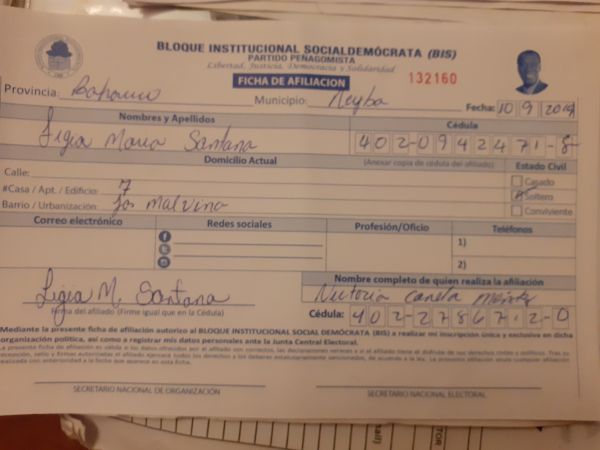 BLOQUE INSTITUCIONAL SOCIALDEMÓCRATA (BIS)
PARTIDO PEÑAGOMISTA
Libertad, Justicia, Democracia y Solidaridad
FICHA DE AFILIACION
132160
Provincia: Bahoruco Municipio: Neyba Fecha: 10 9 2019
Nombres y Apellidos Cédula
Ligia Maria Santana 402-0942471-8
Domicilio Actual (Anexar copia de cédula del afiliado) Estado Civil
Calle: Casado
#Casa / Apt. / Edificio: 7 Soltero
Barrio / Urbanización: Los Malvina Conviviente
Correo electrónico Redes sociales Profesión/Oficio Teléfonos
1)
2)
Ligia M. Santana
Firma del afiliado (Firme igual que en la Cédula)
Nombre completo de quien realiza la afiliación
Victoria Canela
Cédula: 402-2786712-0
Mediante la presente ficha de afiliación autorizo al BLOQUE INSTITUCIONAL SOCIAL DEMÓCRATA (BIS) a realizar mi inscripción única y exclusiva en dicha
organización política, así como a registrar mis datos personales ante la Junta Central Electoral.
SECRETARIO NACIONAL DE ORGANIZACIÓN SECRETARIO NACIONAL ELECTORAL